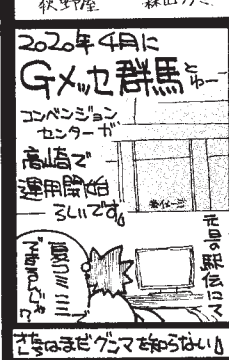 荻野屋
森田
2020年4月に
Gメッセ群馬とゆー
コンベンション
センターが
高崎で
運用開始
らしいです。
※イメージ
元旦の駅伝にて
夏コミここで
できるんじゃ!?
まだグンマを知らない